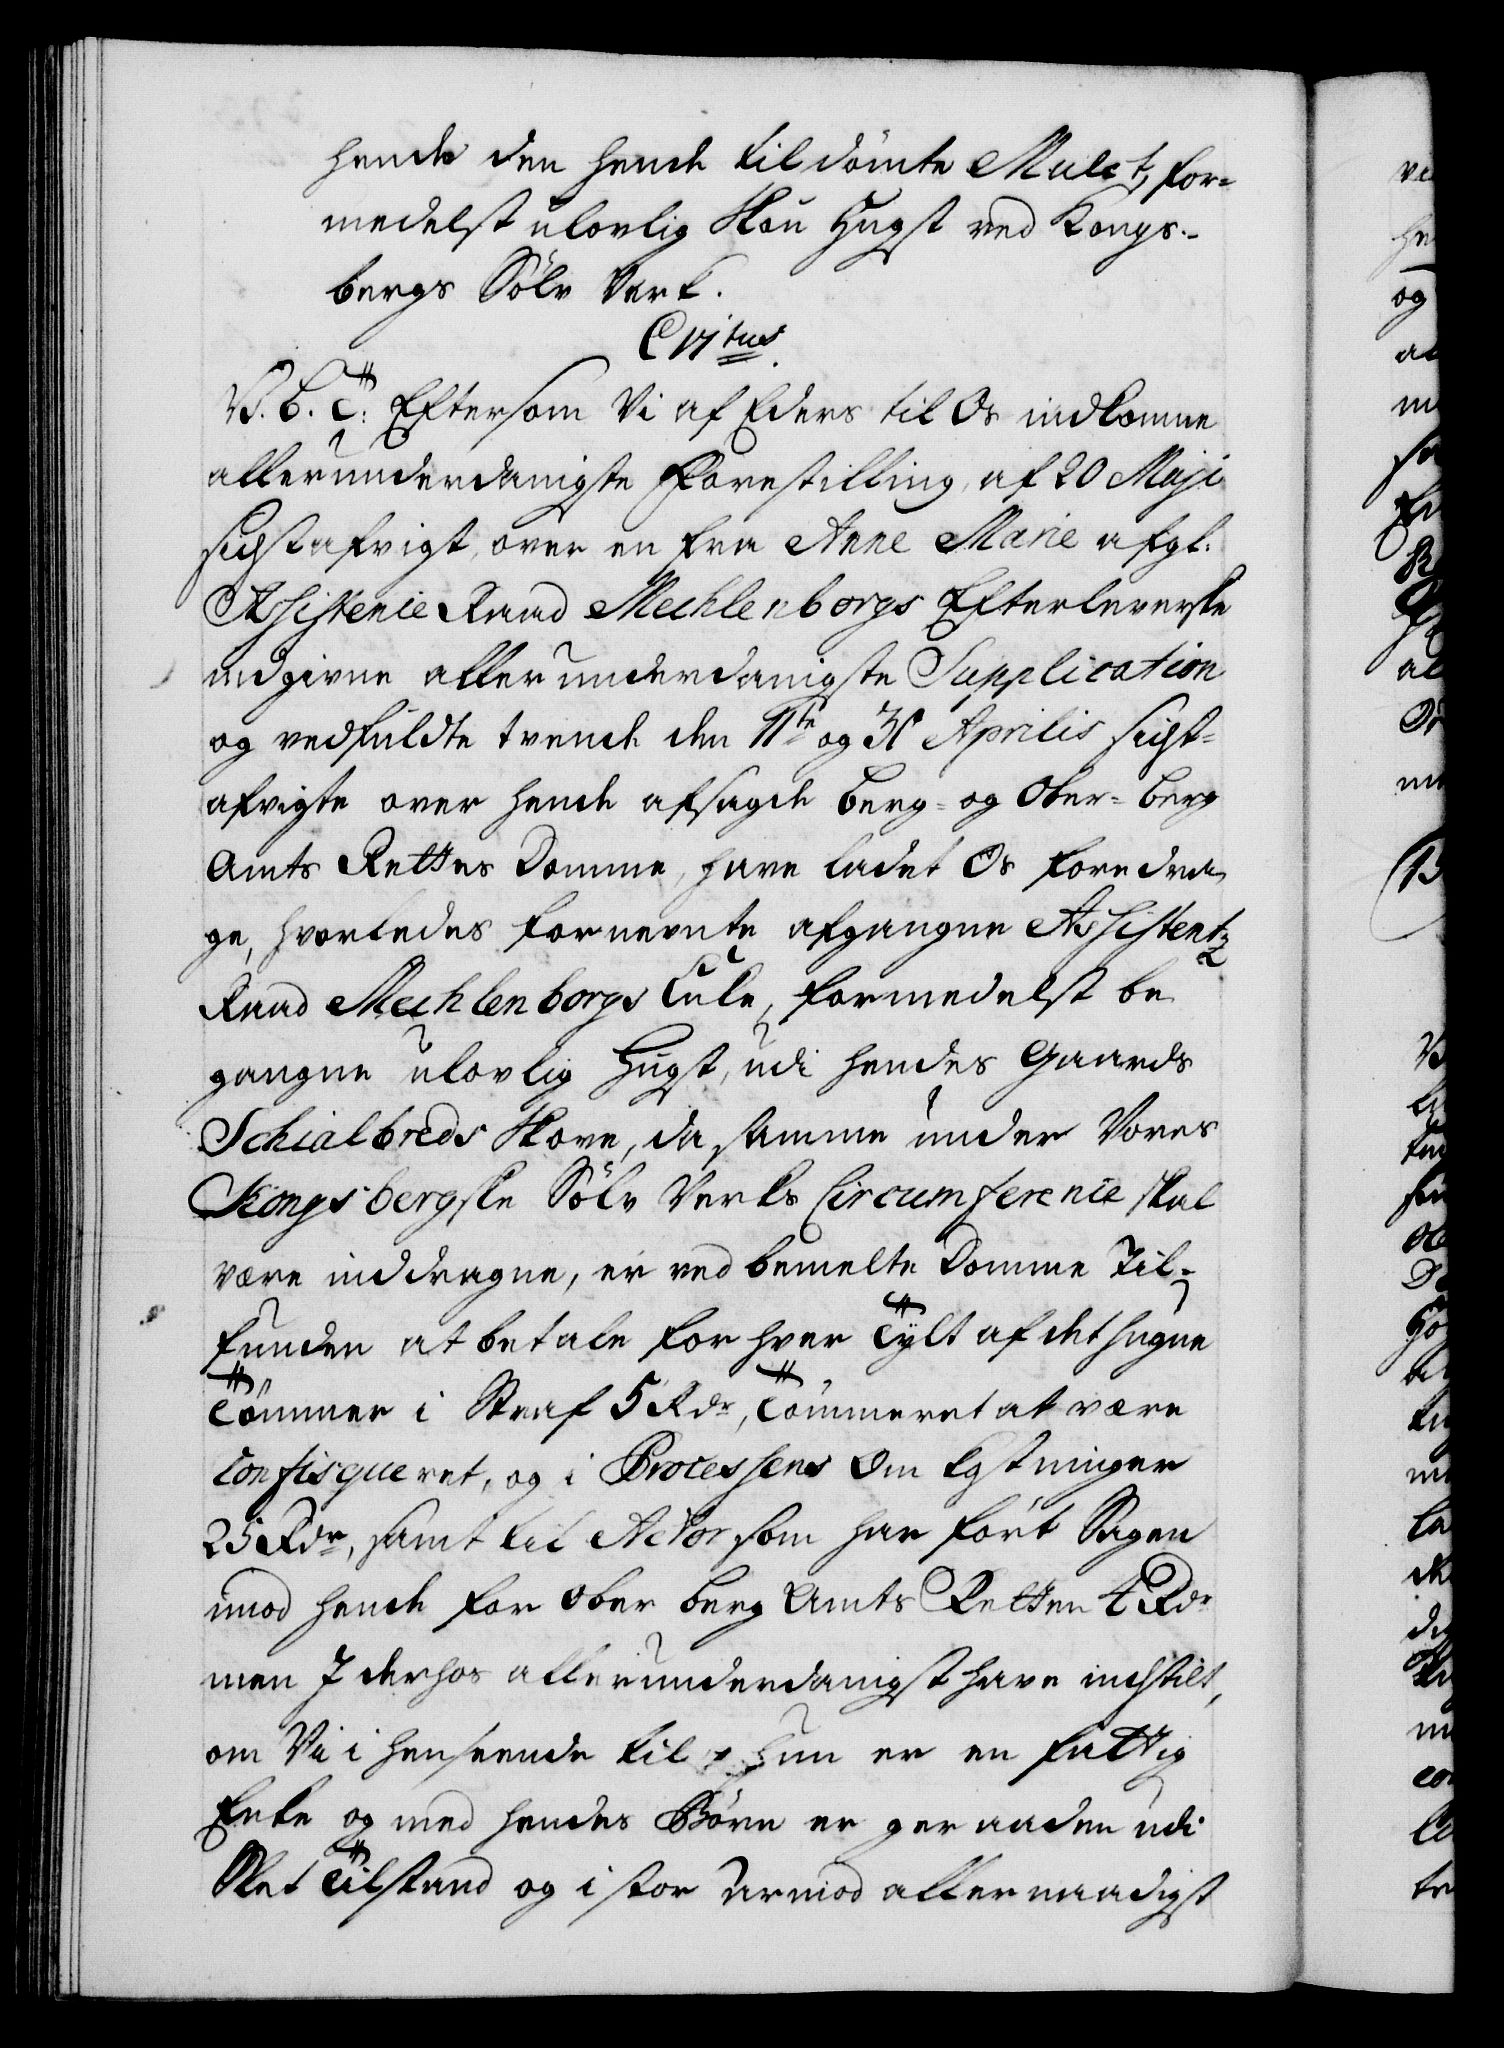 hende den hende tildømte Mulct, for-
medelst ulovlig Skou Hugst ved Kongs-
bergs Sølv Verk.
C VI tus
V. G. T: Eftersom Vi af Eders til Os indkomne
allerunderdanigste Forestilling, af 20 Maji
sidstafvigt, over en fra Anne Marie afgl:
Assistence Raad Mechlenborgs Efterleverske
indgivne allerunderdanigste Supplication
og vedfuldte tvende den 11te og 30 Aprilis sidst-
afvigte over hende afsagde Berg- og Ober-Berg
Amts Rettes Domme, have ladet Os foredra-
ge, hvorledes fornevnte afgangne Assistentz
Raad Mechlenborgs Enke, formedelst be-
gangne ulovlig Hugst, udi hendes Gaards
Schialbreds Skove, da samme under Vores
Kongsbergske Sølv Verks Circumference skal
være inddragne, er ved bemelte Domme Til-
funden at betale for hver Tylt af det hugne
Tømmer i Straf 5 Rdr, Tømmeret at være
confisqueret, og i Processens Omkostninger
25 Rdr, samt til Actor som har ført Sagen
imod hende for Ober Berg Amts Retten 4 Rdr
men I derhos allerunderdanigst have indstilt,
om Vi i henseende til hun er en fattig
Enke og med hendes Børn er geraaden udi
Slet Tilstand og i stor Armod allernaadigst